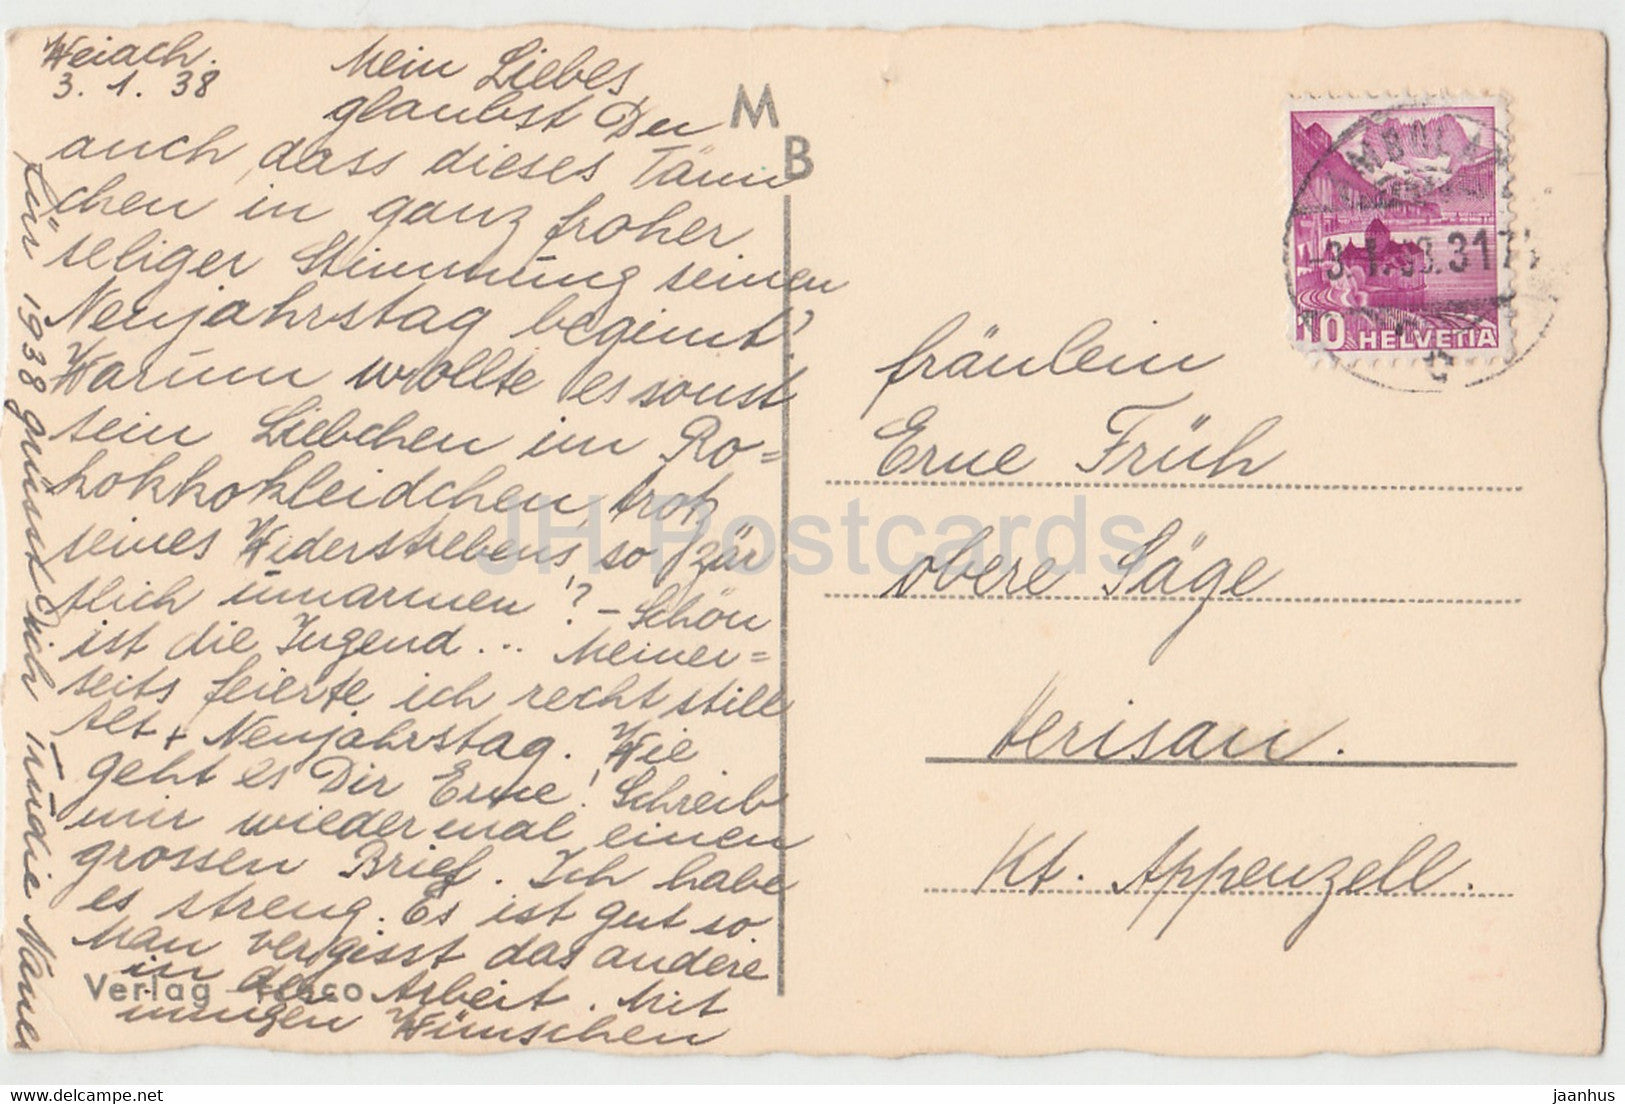 Weiach.
3. 1. 38
Mein Liebes
glaubst Du
auch, dass dieses Tänn
chen in ganz froher
seliger Stimmung seinen
Neujahrstag beginnt?
Warum wollte es sonst
sein Liebchen im Ro=
kokkokleidchen, trotz
seines Widerstrebens so zär
tlich umarmen!? – Schön
ist die Jugend... Meiner=
seits feierte ich recht still
Alt + Neujahrstag. Wie
geht es Dir Erne! Schreib
mir wieder mal einen
grossen Brief. Ich habe
es streng. Es ist gut so.
Man vergisst das andere
in der Arbeit. Mit
innigen Wünschen
für 1938 grüsst Dich
M
B
Verlag
10 HELVETIA
-3.1.
Fräulein
Erne Früh
obere Säge
Herisau.
Kt. Appenzell.
JH Postcards
jaanhus